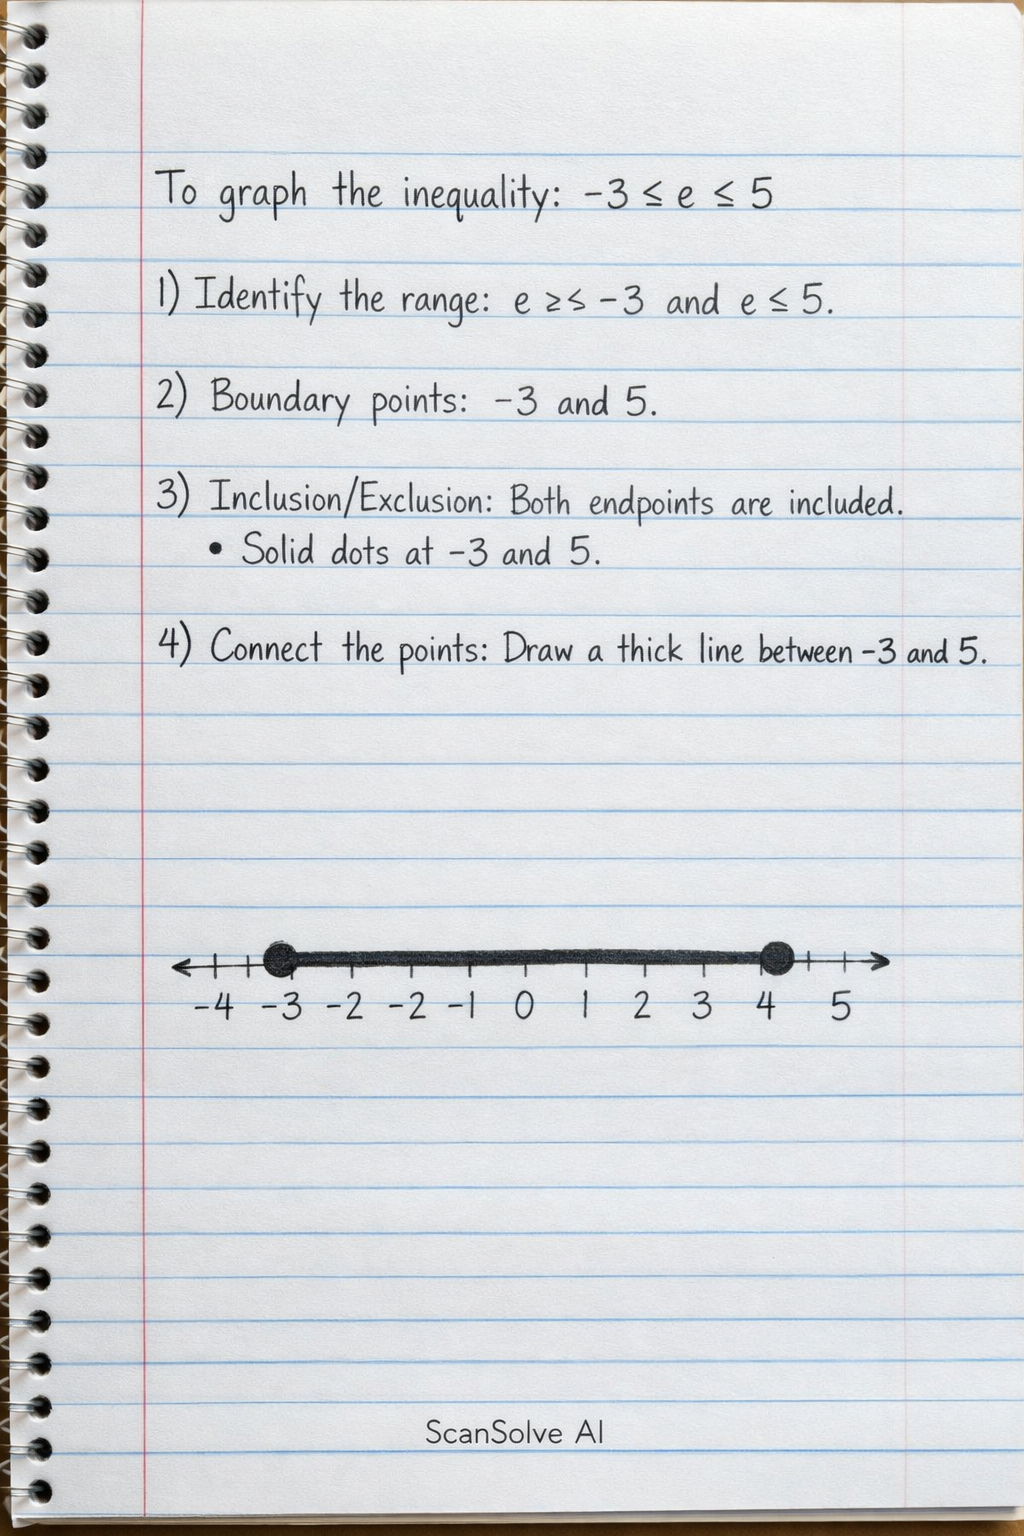 To graph the inequality: -3 ≤ e ≤ 5
1) Identify the range: e ≥≤ -3 and e ≤ 5.
2) Boundary points: -3 and 5.
3) Inclusion/Exclusion: Both endpoints are included.
• Solid dots at -3 and 5.
4) Connect the points: Draw a thick line between -3 and 5.
-4 -3 -2 -2 -1 0 1 2 3 4 5
ScanSolve AI